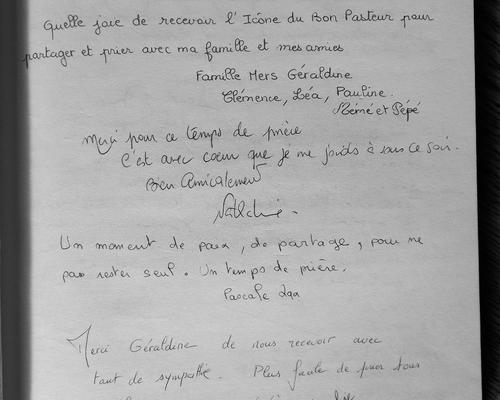 Quelle joie de recevoir l'Icône du Bon Pasteur pour
partager et prier avec ma famille et mes amies
Famille Mers Géraldine
Clémence, Léa, Pauline.
Mémé et Pépé
Merci pour ce temps de prière
C'est avec coeur que je me joids à vous ce soir.
Bien Amicalement
Un moment de paix, de partage, pour ne
pas rester seul. Un temps de prière.
Pascale
Merci Géraldine de nous recevoir avec
tant de sympathie. Plus facile de prier tous